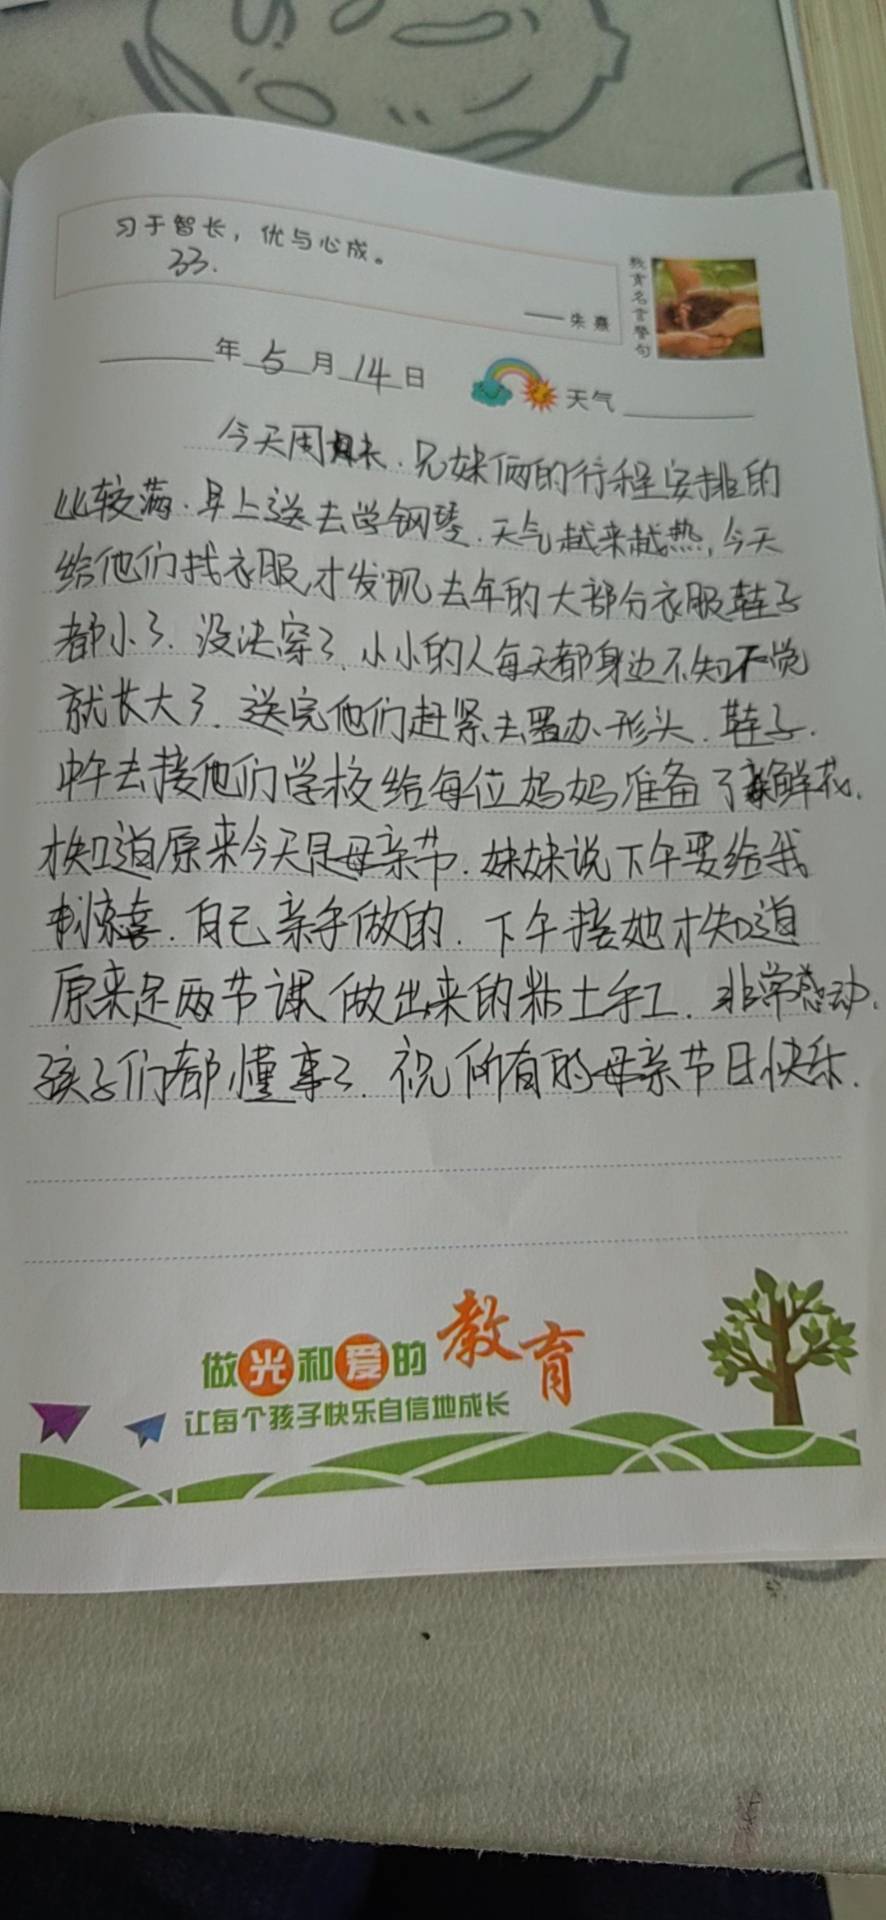 习于智长，优与心成。
33.
——朱熹
教育名言警句
年 5 月 14 日
天气
今天周末.兄妹俩的行程安排的
比较满.早上送去学钢琴.天气越来越热,今天
给他们找衣服才发现去年的大部分衣服鞋子
都小了.没法穿了.小小的人每天都身边不知不觉
就长大了.送完他们赶紧去置办行头.鞋子.
中午去接他们学校给每位妈妈准备了鲜花.
才知道原来今天是母亲节.妹妹说下午要给我
个惊喜.自己亲手做的.下午接她才知道
原来是两节课做出来的粘土手工.非常感动.
孩子们都懂事了.祝所有的母亲节日快乐.
做光和爱的教育
让每个孩子快乐自信地成长